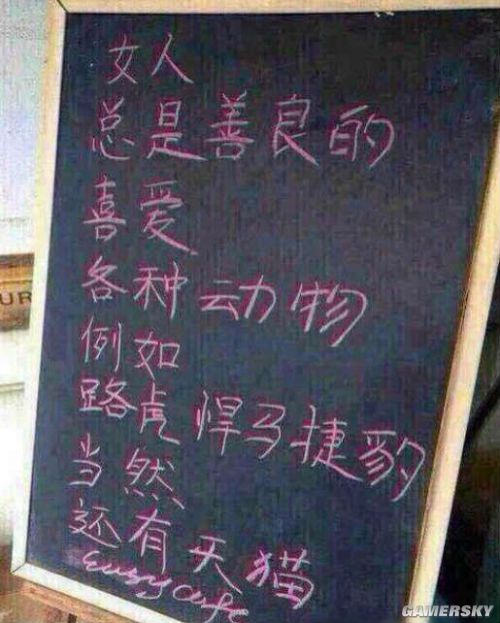 女人
总是善良的
喜爱
各种动物
例如
路虎 悍马捷豹
当然
还有天猫
UR
GAMERSKY